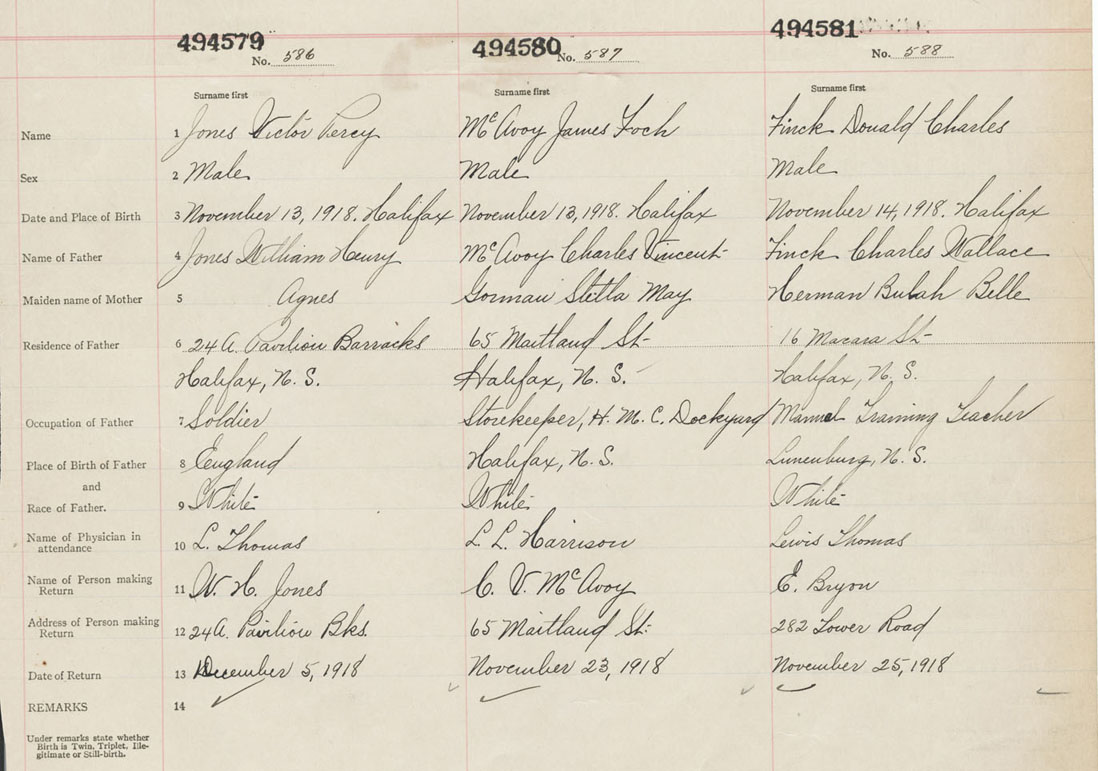 494579 494580 494581
No. 586 No. 587 No. 588
Surname first Surname first Surname first
Name 1 Jones Victor Percy McAvoy James Foch Finck Donald Charles
Sex 2 Male Male Male
Date and Place of Birth 3 November 13, 1918. Halifax November 13, 1918. Halifax November 14, 1918. Halifax
Name of Father 4 Jones William Henry McAvoy Charles Vincent Finck Charles Wallace
Maiden name of Mother 5 Agnes Gorman Stella May Herman Bulah Belle
Residence of Father 6 24 A. Pavilion Barracks 65 Maitland St 16 Macara St
Halifax, N. S. Halifax, N. S. Halifax, N. S.
Occupation of Father 7 Soldier Storekeeper, H. M. C. Dockyard Manual Training Teacher
Place of Birth of Father 8 England Halifax, N. S. Lunenburg, N. S.
and
Race of Father. 9 White White White
Name of Physician in
attendance 10 L. Thomas L. L. Harrison Lewis Thomas
Name of Person making
Return 11 W. H. Jones C. V. McAvoy E. Bryon
Address of Person making
Return 12 24 A. Pavilion Bks. 65 Maitland St. 282 Lower Road
Date of Return 13 December 5, 1918 November 23, 1918 November 25, 1918
REMARKS 14
Under remarks state whether
Birth is Twin, Triplet, Ille-
gitimate or Still-birth.